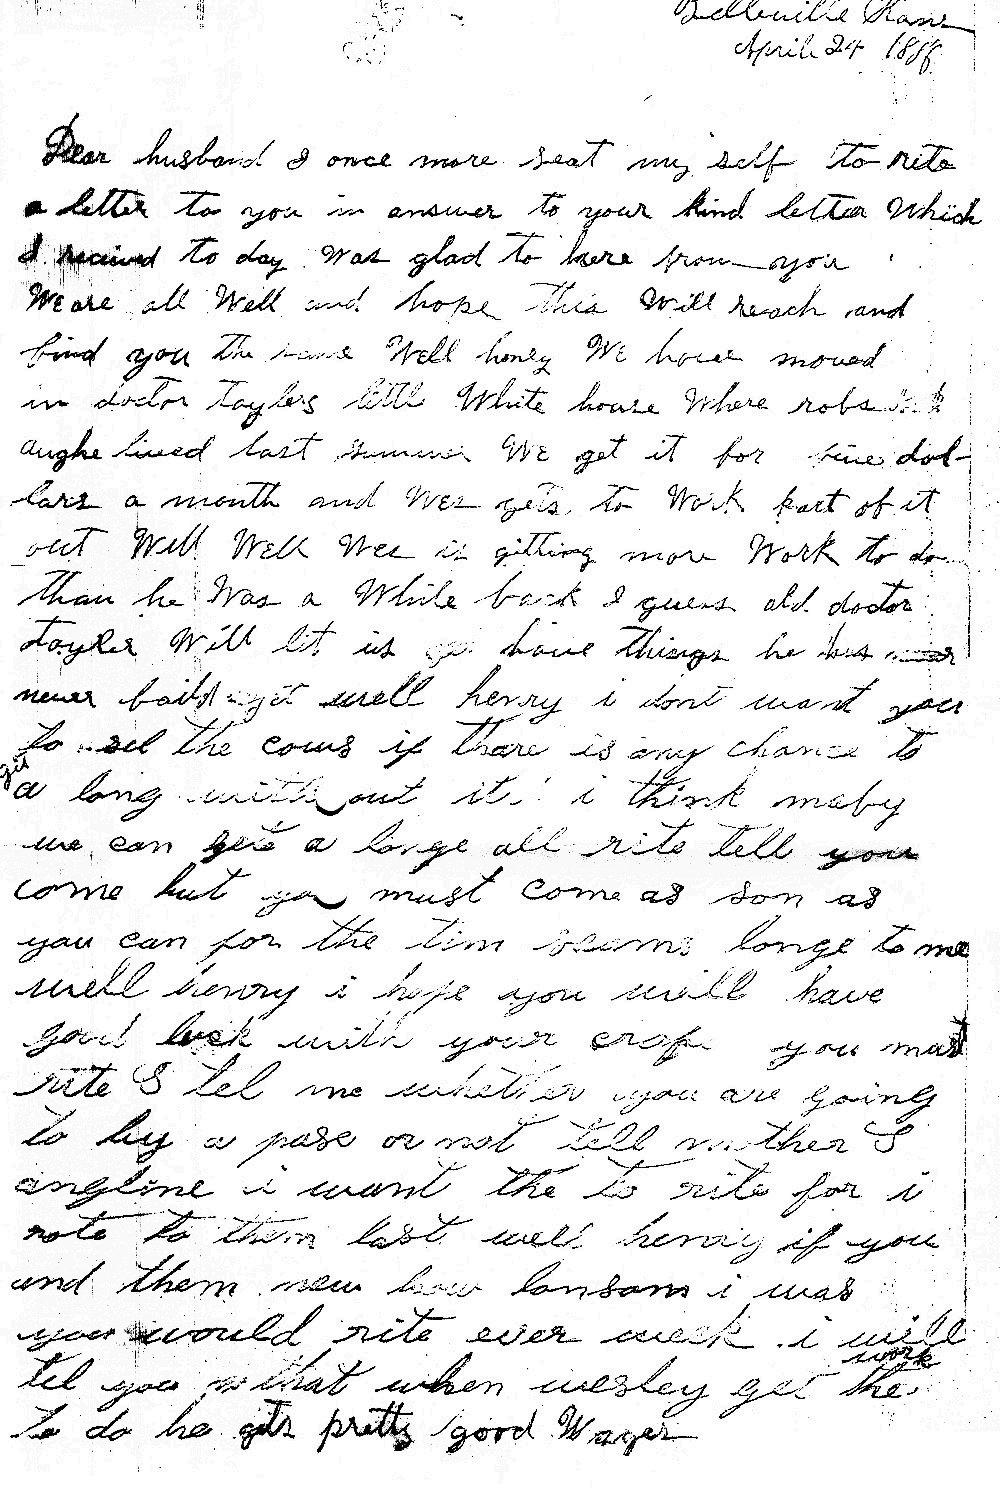 Belleville Kans
April 24 188
Dear husband I once more seat my self to rite
a letter to you in answer to your kind letter Which
I recived to day Was glad to here from you
We are all Well and hope this Will reach and
find you the same Well honey We have moved
in doctor taylers little White house Where robs
aughe lived last summer We get it for five dol-
lars a month and Wes gets to Work part of it
out Well Well Wes is gitting more Work to do
than he Was a While back I guess old doctor
tayler Will let us have things he has
never yet well henry i dont want you
to sel the cows if thare is any chance to
git
a long with out it i think maby
we can gete a longe all rite tell you
come but you must come as son as
you can for the tim seams longe to me
well henry i hope you will have
good luck with your crop you must
rite & tel me whether you are going
to by a pase or not tell mother &
angline i want the to rite for i
rote to them last well henry if you
and them new how lonsom i was
you would rite ever week i will
work
tel you that when wesley get the
to do he gits pretty good Wages